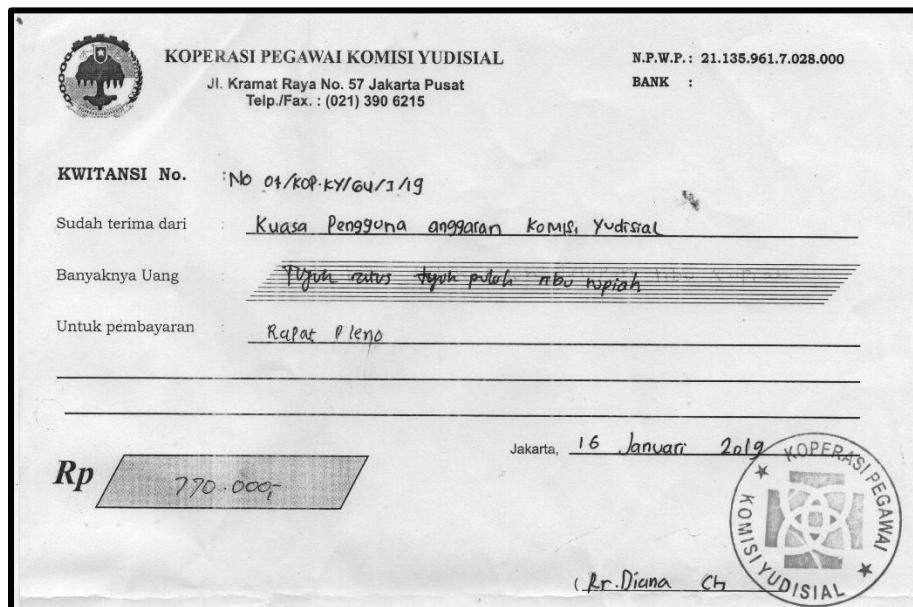 KOPERASI PEGAWAI KOMISI YUDISIAL
Jl. Kramat Raya No. 57 Jakarta Pusat
Telp./Fax. : (021) 390 6215
N.P.W.P. : 21.135.961.7.028.000
BANK :
KWITANSI No. : No 04/KOP.KY/GU/I/19
Sudah terima dari : Kuasa Pengguna anggaran Komisi Yudisial
Banyaknya Uang : Tujuh ratus tujuh puluh ribu rupiah
Untuk pembayaran : Rapat Pleno
Jakarta, 16 Januari 2019
Rp 770.000,-
KOPERASI PEGAWAI
KOMISI YUDISIAL
( Rr. Diana Ch